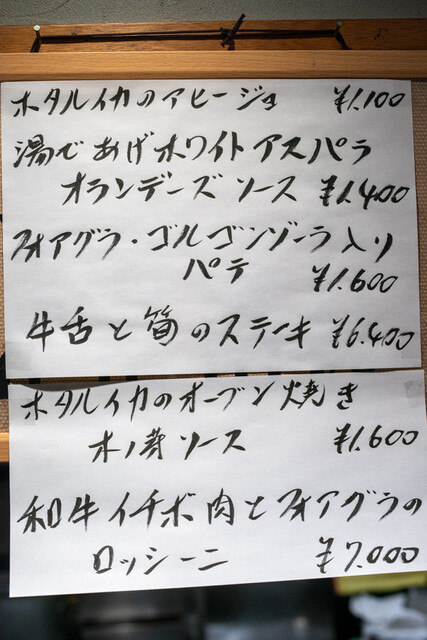 ホタルイカのアヒージョ ¥1.100
湯であげホワイトアスパラ
オランデーズソース ¥1.400
フォアグラ・ゴルゴンゾーラ入り
パテ ¥1.600
牛舌と筍のステーキ ¥6.400
ホタルイカのオーブン焼き
木ノ芽ソース ¥1.600
和牛イチボ肉とフォアグラの
ロッシーニ ¥7.000